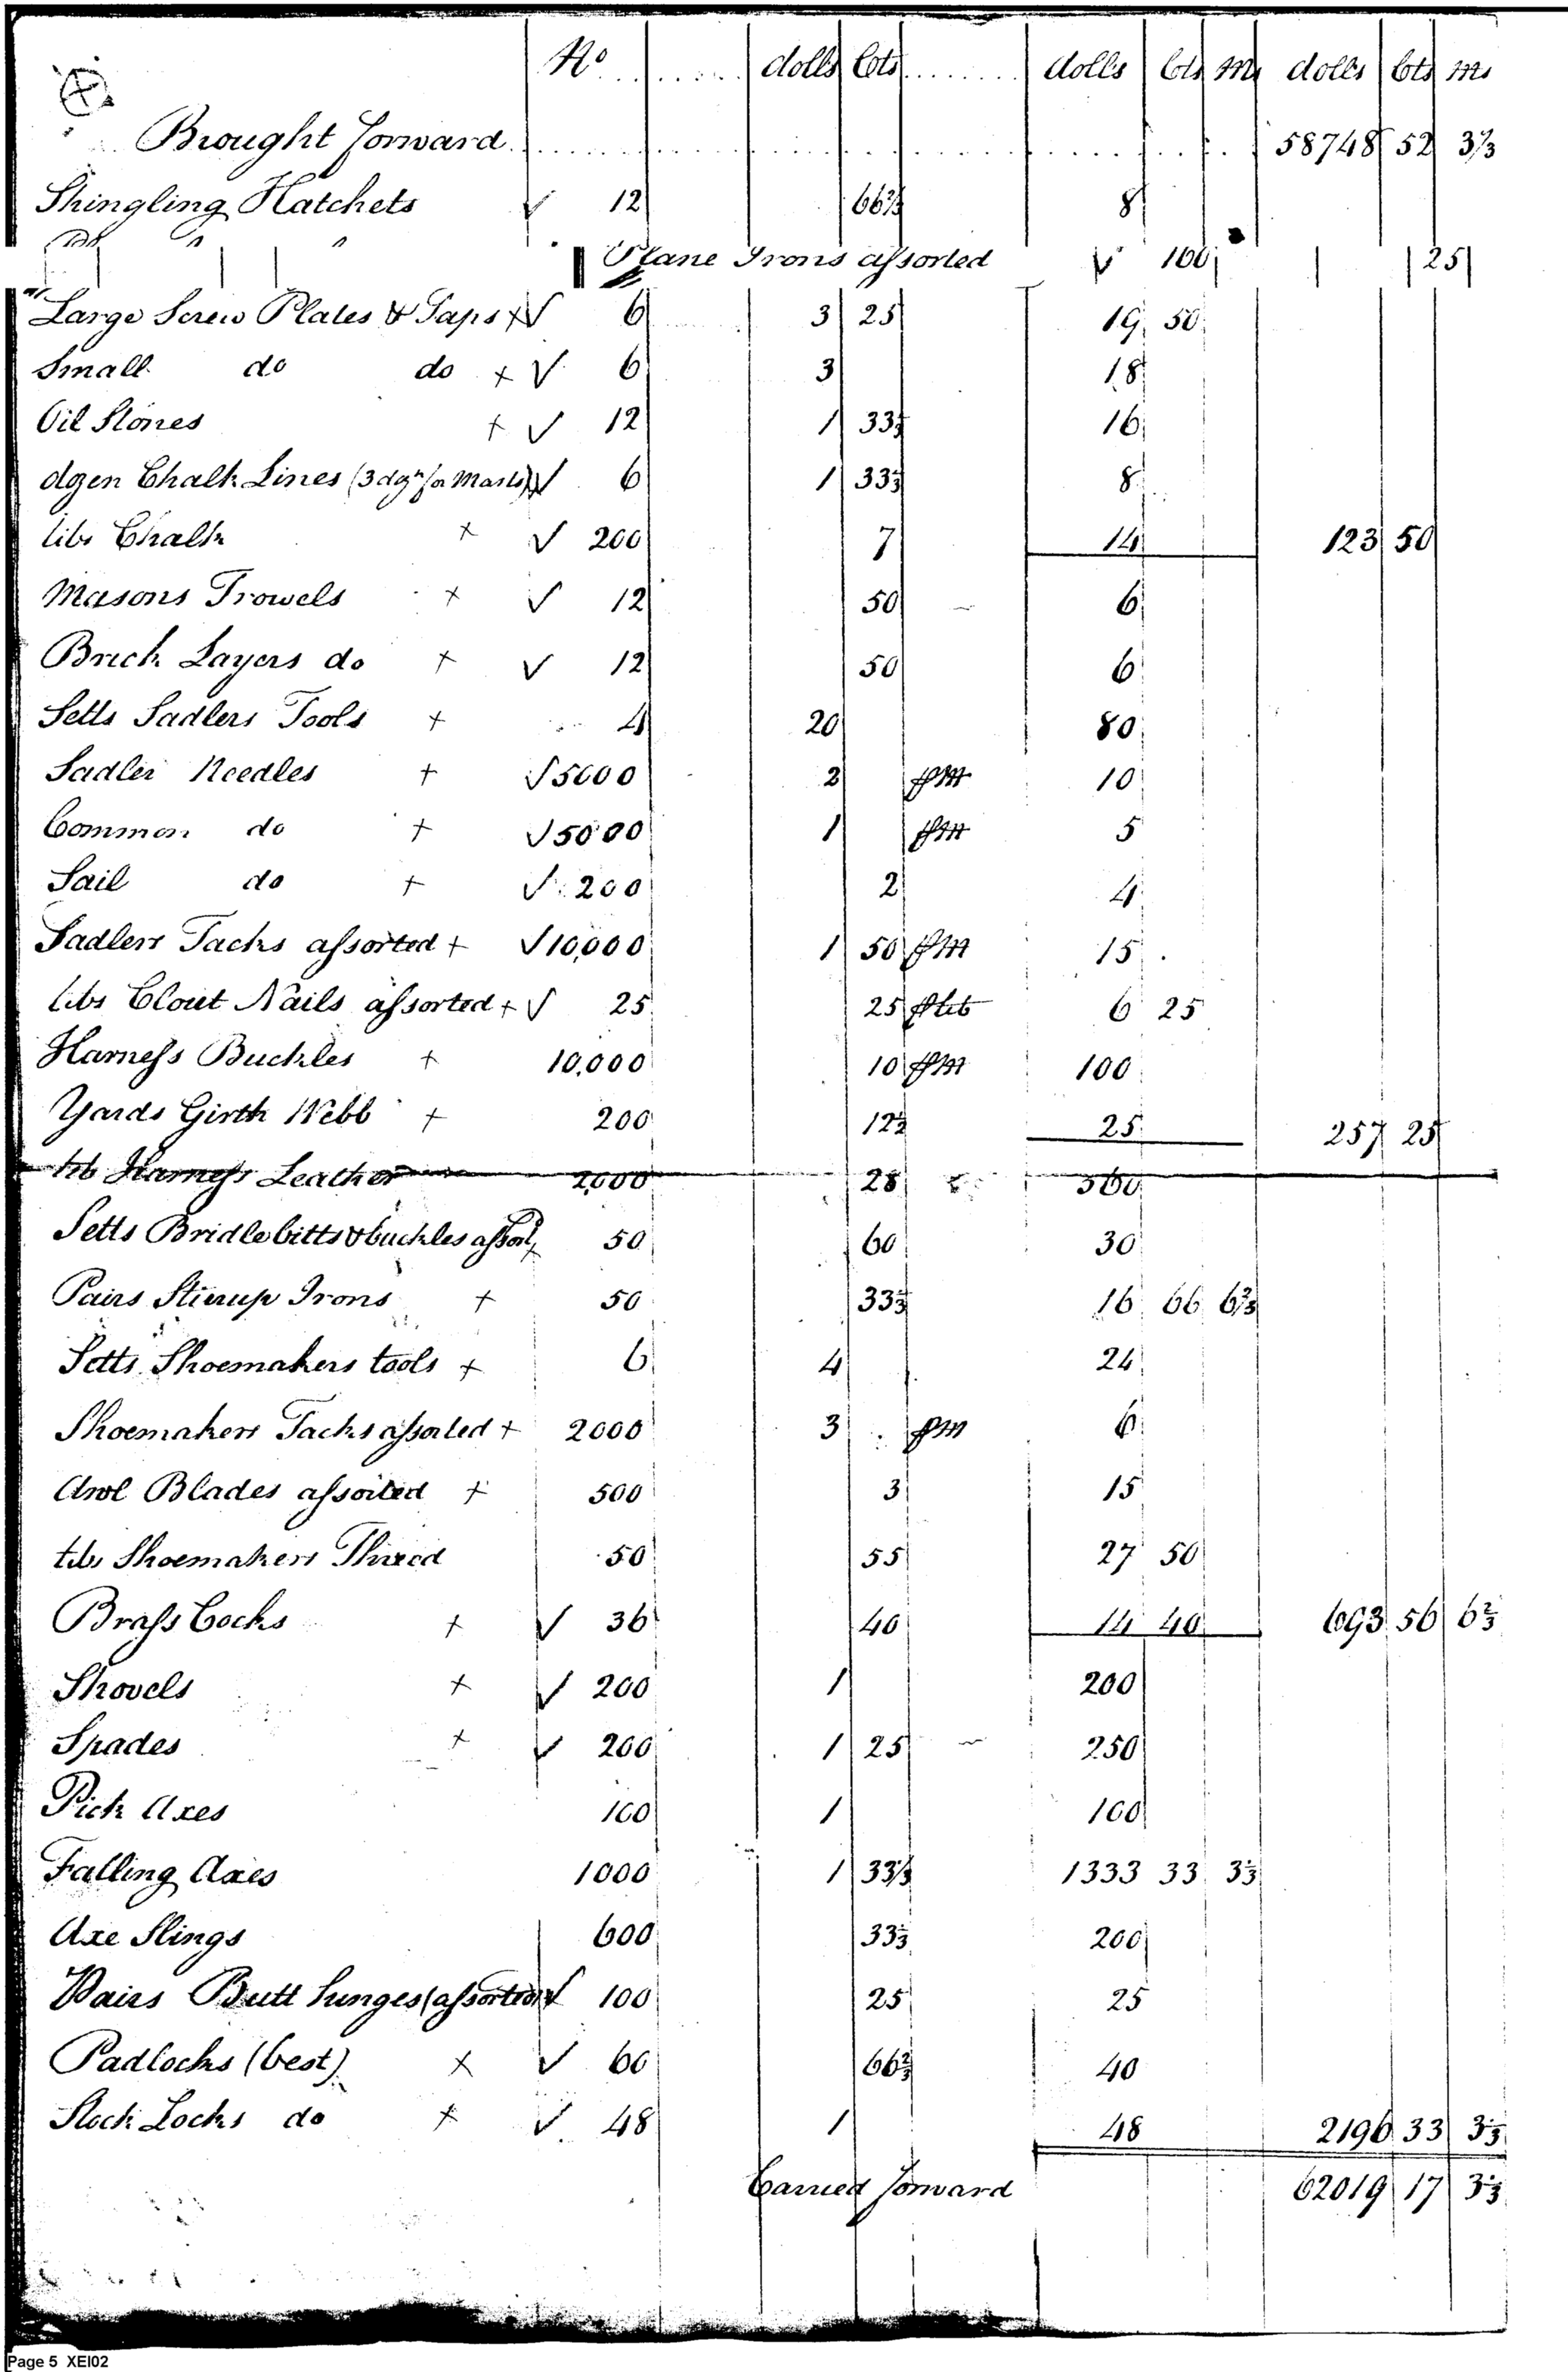 No dolls Cts dolls Cts Ms dolls Cts Ms
Brought forward 58748 52 3⅓
Shingling Hatchets √ 12 66⅔ 8
Plane Irons assorted √ 100 25
Large Screw Plates & Taps + √ 6 3 25 19 50
Small do do + √ 6 3 18
Oil Stones + √ 12 1 33⅓ 16
dozen Chalk Lines (3 dozn for Masts) √ 6 1 33⅓ 8
libs Chalk + √ 200 7 14 123 50
Masons Trowels + √ 12 50 6
Brick Layers do + √ 12 50 6
Setts Sadlers Tools + 4 20 80
Sadler Needles + √ 5000 2 ⅌M 10
Common do + √ 5000 1 ⅌M 5
Sail do + √ 200 2 4
Sadlers Tacks assorted + √ 10,000 1 50 ⅌M 15
libs Clout Nails assorted + √ 25 25 ⅌lib 6 25
Harness Buckles + 10,000 10 ⅌M 100
Yards Girth Webb + 200 12½ 25 257 25
lib Harness Leather 2,000 28 560
Setts Bridle bitts & buckles assortd + 50 60 30
Pairs Stirrup Irons + 50 33⅓ 16 66 6⅔
Setts Shoemakers tools + 6 4 24
Shoemakers Tacks assorted + 2000 3 ⅌M 6
Awl Blades assorted + 500 3 15
libs Shoemakers Thread 50 55 27 50
Brass Cocks + √ 36 40 14 40 693 56 6⅔
Shovels + √ 200 1 200
Spades + √ 200 1 25 250
Pick Axes 100 1 100
Falling Axes 1000 1 33⅓ 1333 33 3⅓
Axe Slings 600 33⅓ 200
Pairs Butt hinges (assorted) √ 100 25 25
Padlocks (best) + √ 60 66⅔ 40
Stock Locks do + √ 48 1 48 2196 33 3⅓
Carried forward 62019 17 3⅓
Page 5 XEI02